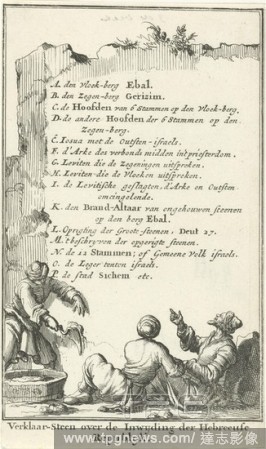 A. den Vloek-berg Ebal.
B. den Zegen-berg Gerizim.
C. de Hoofden van 6 Stammen op den Vloek-berg.
D. de andere Hoofden der 6 Stammen op den
Zegen-berg.
E. Iosua met de Outsten-israels.
F. d'Arke des verbonds midden int priesterdom.
G. Leviten die de Zegeningen uitspreken.
H. Leviten die de Vloeken uitspreken.
I. de Levitische geslagten, d'Arke en Outsten
omcingelende.
K. den Brand-Altaar van ongehouwen steenen
op den berg Ebal.
L. Oprigting der Groote steenen. Deut 27.
M. 't beschryven der opgerigte steenen.
N. de 12 Stammen; of Gemeene Volk israels.
O. de Leger tenten israels.
P. de stad Sichem etc.
Verklaar-Steen over de Inwyding der Hebreeuse
www.tpgnews.com/達志影像